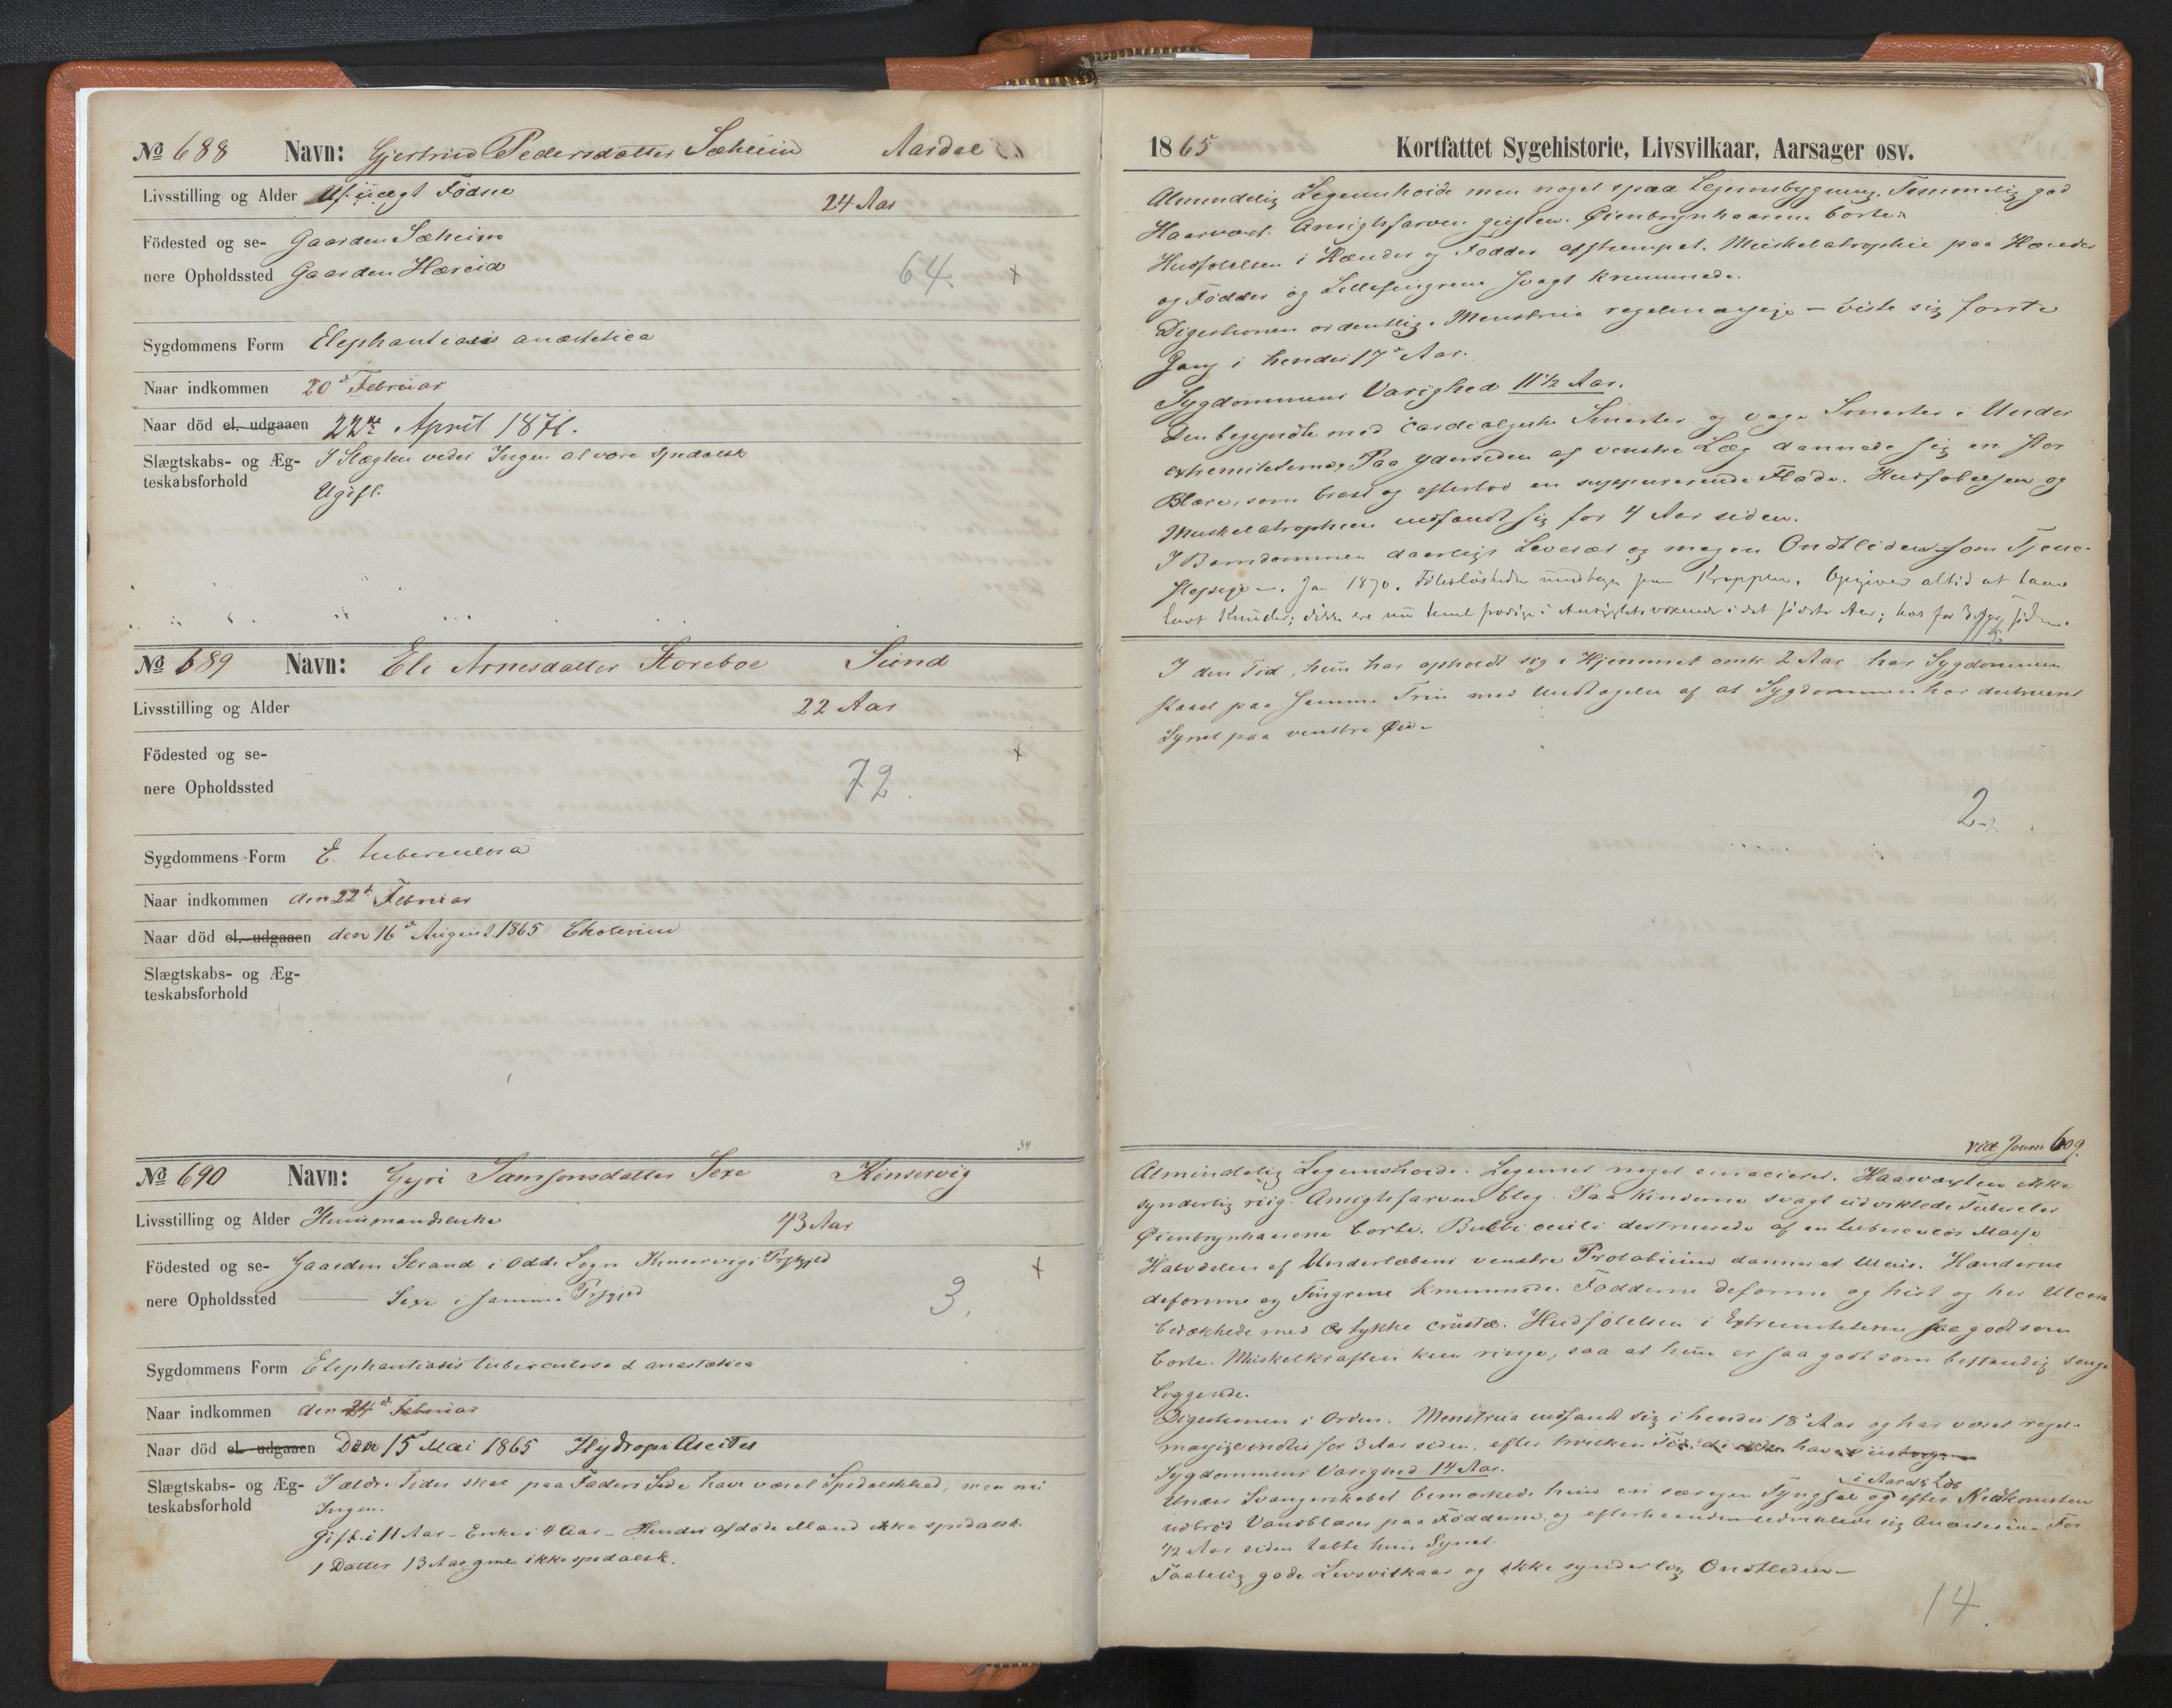 № 688 Navn: Gjertrud Pedersdatter Sæheim Aardal
Livsstilling og Alder Af uægt Fødsel 24 Aar
Födested og se- Gaarden Sæheim
nere Opholdssted Gaarden Hæreid 64. +
Sygdommens Form Elephantiasis anæstetica
Naar indkommen 20de Februar
Naar död el. udgaaen 22de April 1871.
Slægtskabs- og Æg- I Slægten vides Ingen at være spedalsk
teskabsforhold Ugift.
№ 689 Navn: Eli Arnesdatter Storeboe Sund
Livsstilling og Alder 22 Aar
Födested og se- +
nere Opholdssted 72.
Sygdommens Form E. tuberculosa
Naar indkommen den 22de Februar
Naar död el. udgaaen den 16de August 1865 Cholerine
Slægtskabs- og Æg-
teskabsforhold
34
№ 690 Navn: Gyri Samsonsdatter Sexe Kinservig
Livsstilling og Alder Huusmandsenke 43 Aar
Födested og se- Gaarden Strand i Odde Sogn Kinservigs Prgjld +
nere Opholdssted — Sexe i samme Prgjld 3.
Sygdommens Form Elephantiasis tuberculosa & anæstetica
Naar indkommen den 24de Februar
Naar död el. udgaaen Den 15de Mai 1865 Hydrops Ascites
Slægtskabs- og Æg- I ældre Tider skal paa Faders Side have været Spedalskhed, men nu
teskabsforhold Ingen.
Gift i 11 Aar - Enke i 4 Aar - Hendes afdøde Mand ikke spedalsk.
1 Datter 13 Aar gml ikke spedalsk.
1865 Kortfattet Sygehistorie, Livsvilkaar, Aarsager osv.
Almindelig Legemshøide men noget spæd Legemsbygning. Temmelig god
Haarvæxt. Ansigtsfarven guulen. Øienbrynhaarene borte.
Hudfølelsen i Hænder og Fødder afstumpet. Muskelatrophie paa Hænder
og Fødder og Lillefingrene svagt krummede.
Digestionen ordentlig. Menstrua regelmæssige - viste sig første
Gang i hendes 17de Aar.
Sygdommens Varighed 11½ Aar.
Den begyndte med cardialgiske Smerter og vage Smerter i Under
extremiteterne. Paa Ydersiden af venstre Læg dannede sig en stor
Blære, som brast og efterlod en suppurerende Flade. Hudfølelsen og
Muskelatrophien indfandt sig for 4 Aar siden.
I Barndommen daarligt Levesæt og megen Ondtliden som Tjene-
stepige. Jan 1870. Følesløsheden paa Kroppen. Opgiver altid at have
havt Knuder; disse ere nu i Ansigtet i det sidste Aar; for 3 siden.
I den Tid, hun har opholdt sig i Hjemmet omtr 2 Aar har Sygdommen
staaet paa samme Trin med Undtagelse af at Sygdommen har destrueret
Synet paa venstre Øie -
2.
vid. Journ 609.
Almindelig Legemshøide. Legemet noget emacieret. Haarvæxten ikke
synderlig riig. Ansigtsfarven bleg. Paa Kinderne svagt udviklede Tubercler
Øienbrynhaarene borte. Bulbi oculi destruerede af en tuberculøs Masse
Halvdelen af Underlæbens venstre Prolabium dannet Ulcus. Hænderne
deforme og Fingrene krummede. Fødderne deforme og hist og her Ulcera
bedækkede med tykke crustæ. Hudfølelsen i Extremiteterne saa godt som
borte. Muskelkraften kun ringe, saa at hun er saa godt som bestandig senge
liggende.
Digestionen i Orden. Menstrua indfandt sig i hendes 18de Aar og har været regel-
mæssige indtil for 3 Aar siden, efter hvilken Tid de ikke have
Sygdommens Varighed 14 Aar.
i Aarets Løb
Under Svangerskabet bemærkede hun en særegen Tyngsel og efter Nedkomsten
udbrød Vandblærer paa Fødderne og efterhaanden udviklede sig Anæstesien For
½ Aar siden tabte hun Synet.
Taalelig gode Livsvilkaar og ikke synderlig Ondtliden -
14.